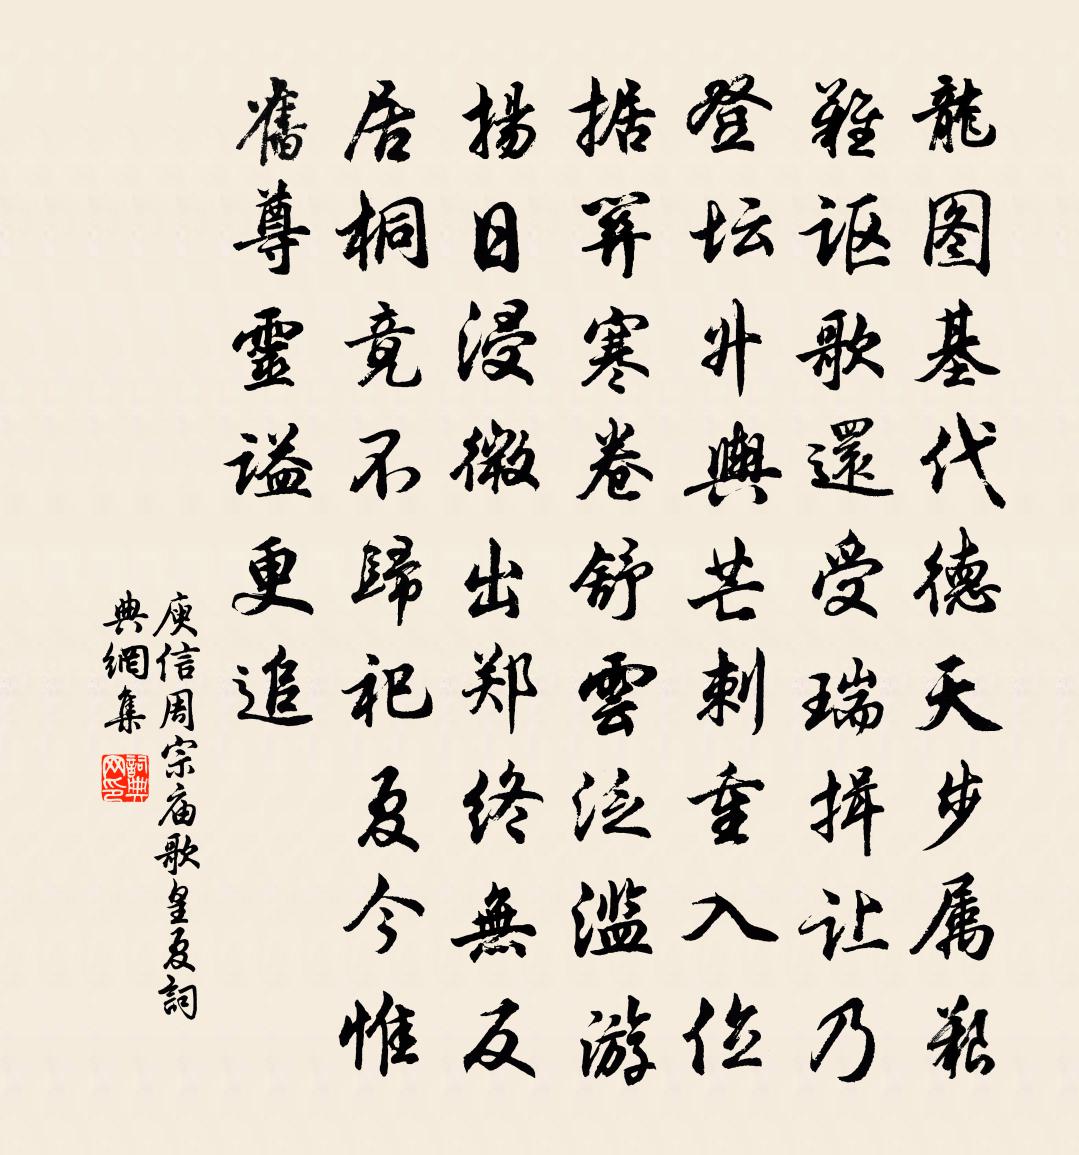 龍图基代德天步属艱
難讴歌還受瑞揖让乃
登坛升輿芒刺重入位
据関寒卷舒雲泛濫游
揚日浸微出郑终無反
居桐竟不歸祀夏今惟
舊尊靈谥更追
庾信周宗庙歌皇夏詞
典網集
詞典网印